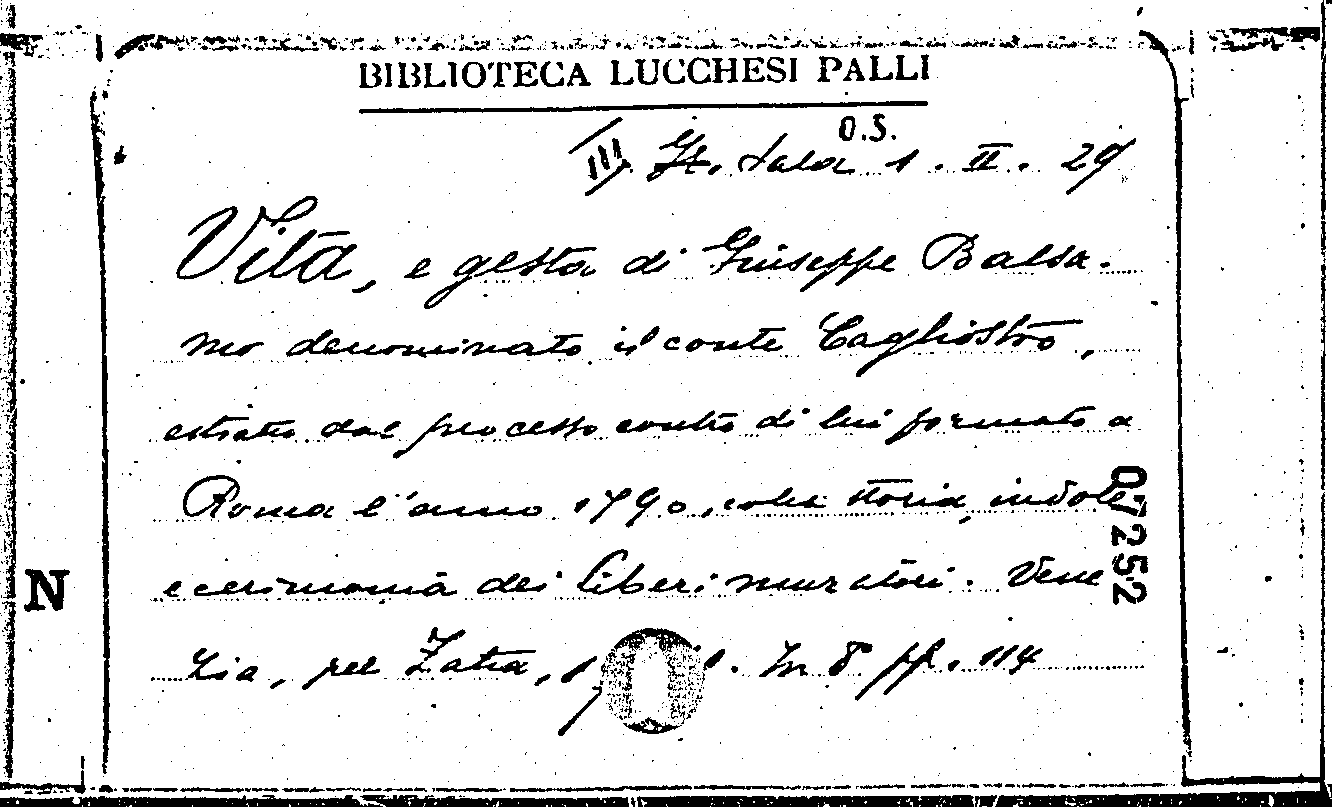 BIBLIOTECA LUCCHESI PALLI
O.S.
III. St. Sala 1. II. 29
Vita, e gesta di Giuseppe Balsa-
mo denominato il conte Cagliostro,
estratto dal processo contro di lui formato a
Roma l'anno 1790, colla storia, indole
e cerimonia dei liberi muratori. Vene
zia, pel Zatta, In 8° pp. 114
07252
N